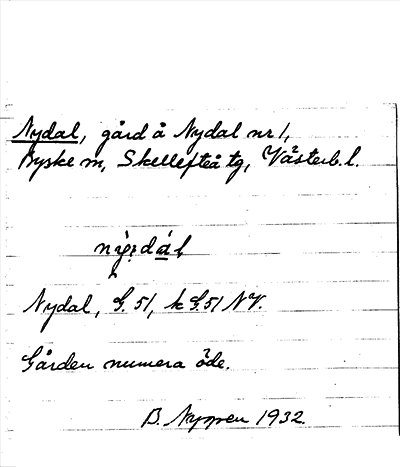 Nydal, gård å Nydal nr 1,
Byske sn, Skellefteå tg, Västerb. l.
Nydal, G. 51, k G. 51 NV.
Gården numera öde.
B. Nygren 1932.